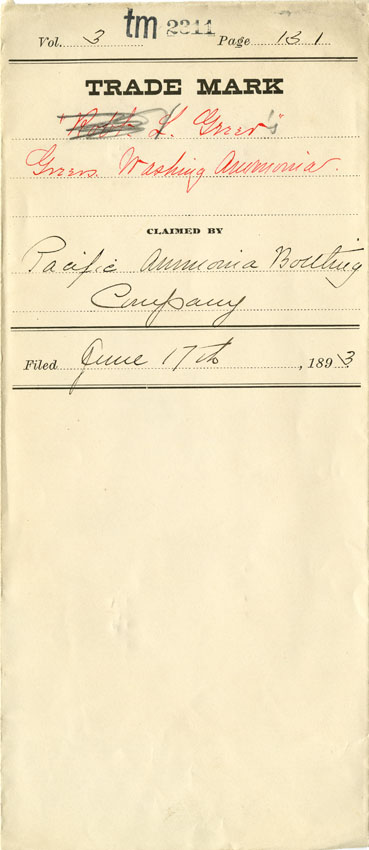 Vol. 3 tm 2311 Page 131
TRADE MARK
L. Greer's
Greers Washing Ammonia.
CLAIMED BY
Pacific Ammonia Bottling
Company
Filed June 17th, 1893